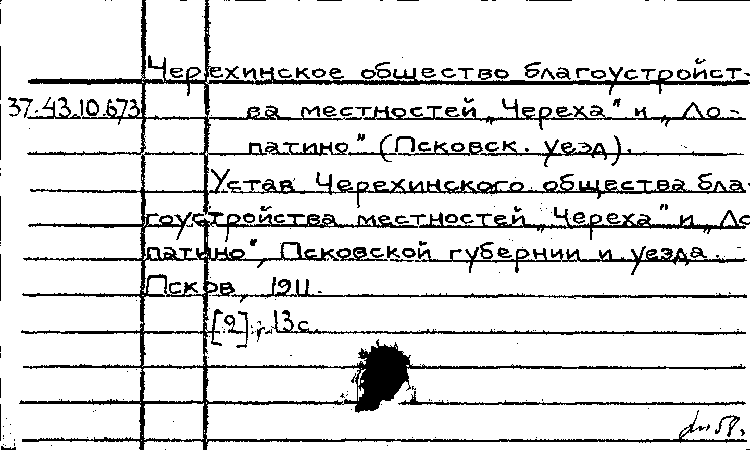 Черехинское общество благоустройст-
37.43.10.673 ва местностей „Череха" и „Ло-
патино" (Псковск. уезд).
Устав Черехинского общества бла-
гоустройства местностей „Череха" и „Ло
патино", Псковской губернии и уезда.
Псков, 1911.
[2], 13 с.
58.